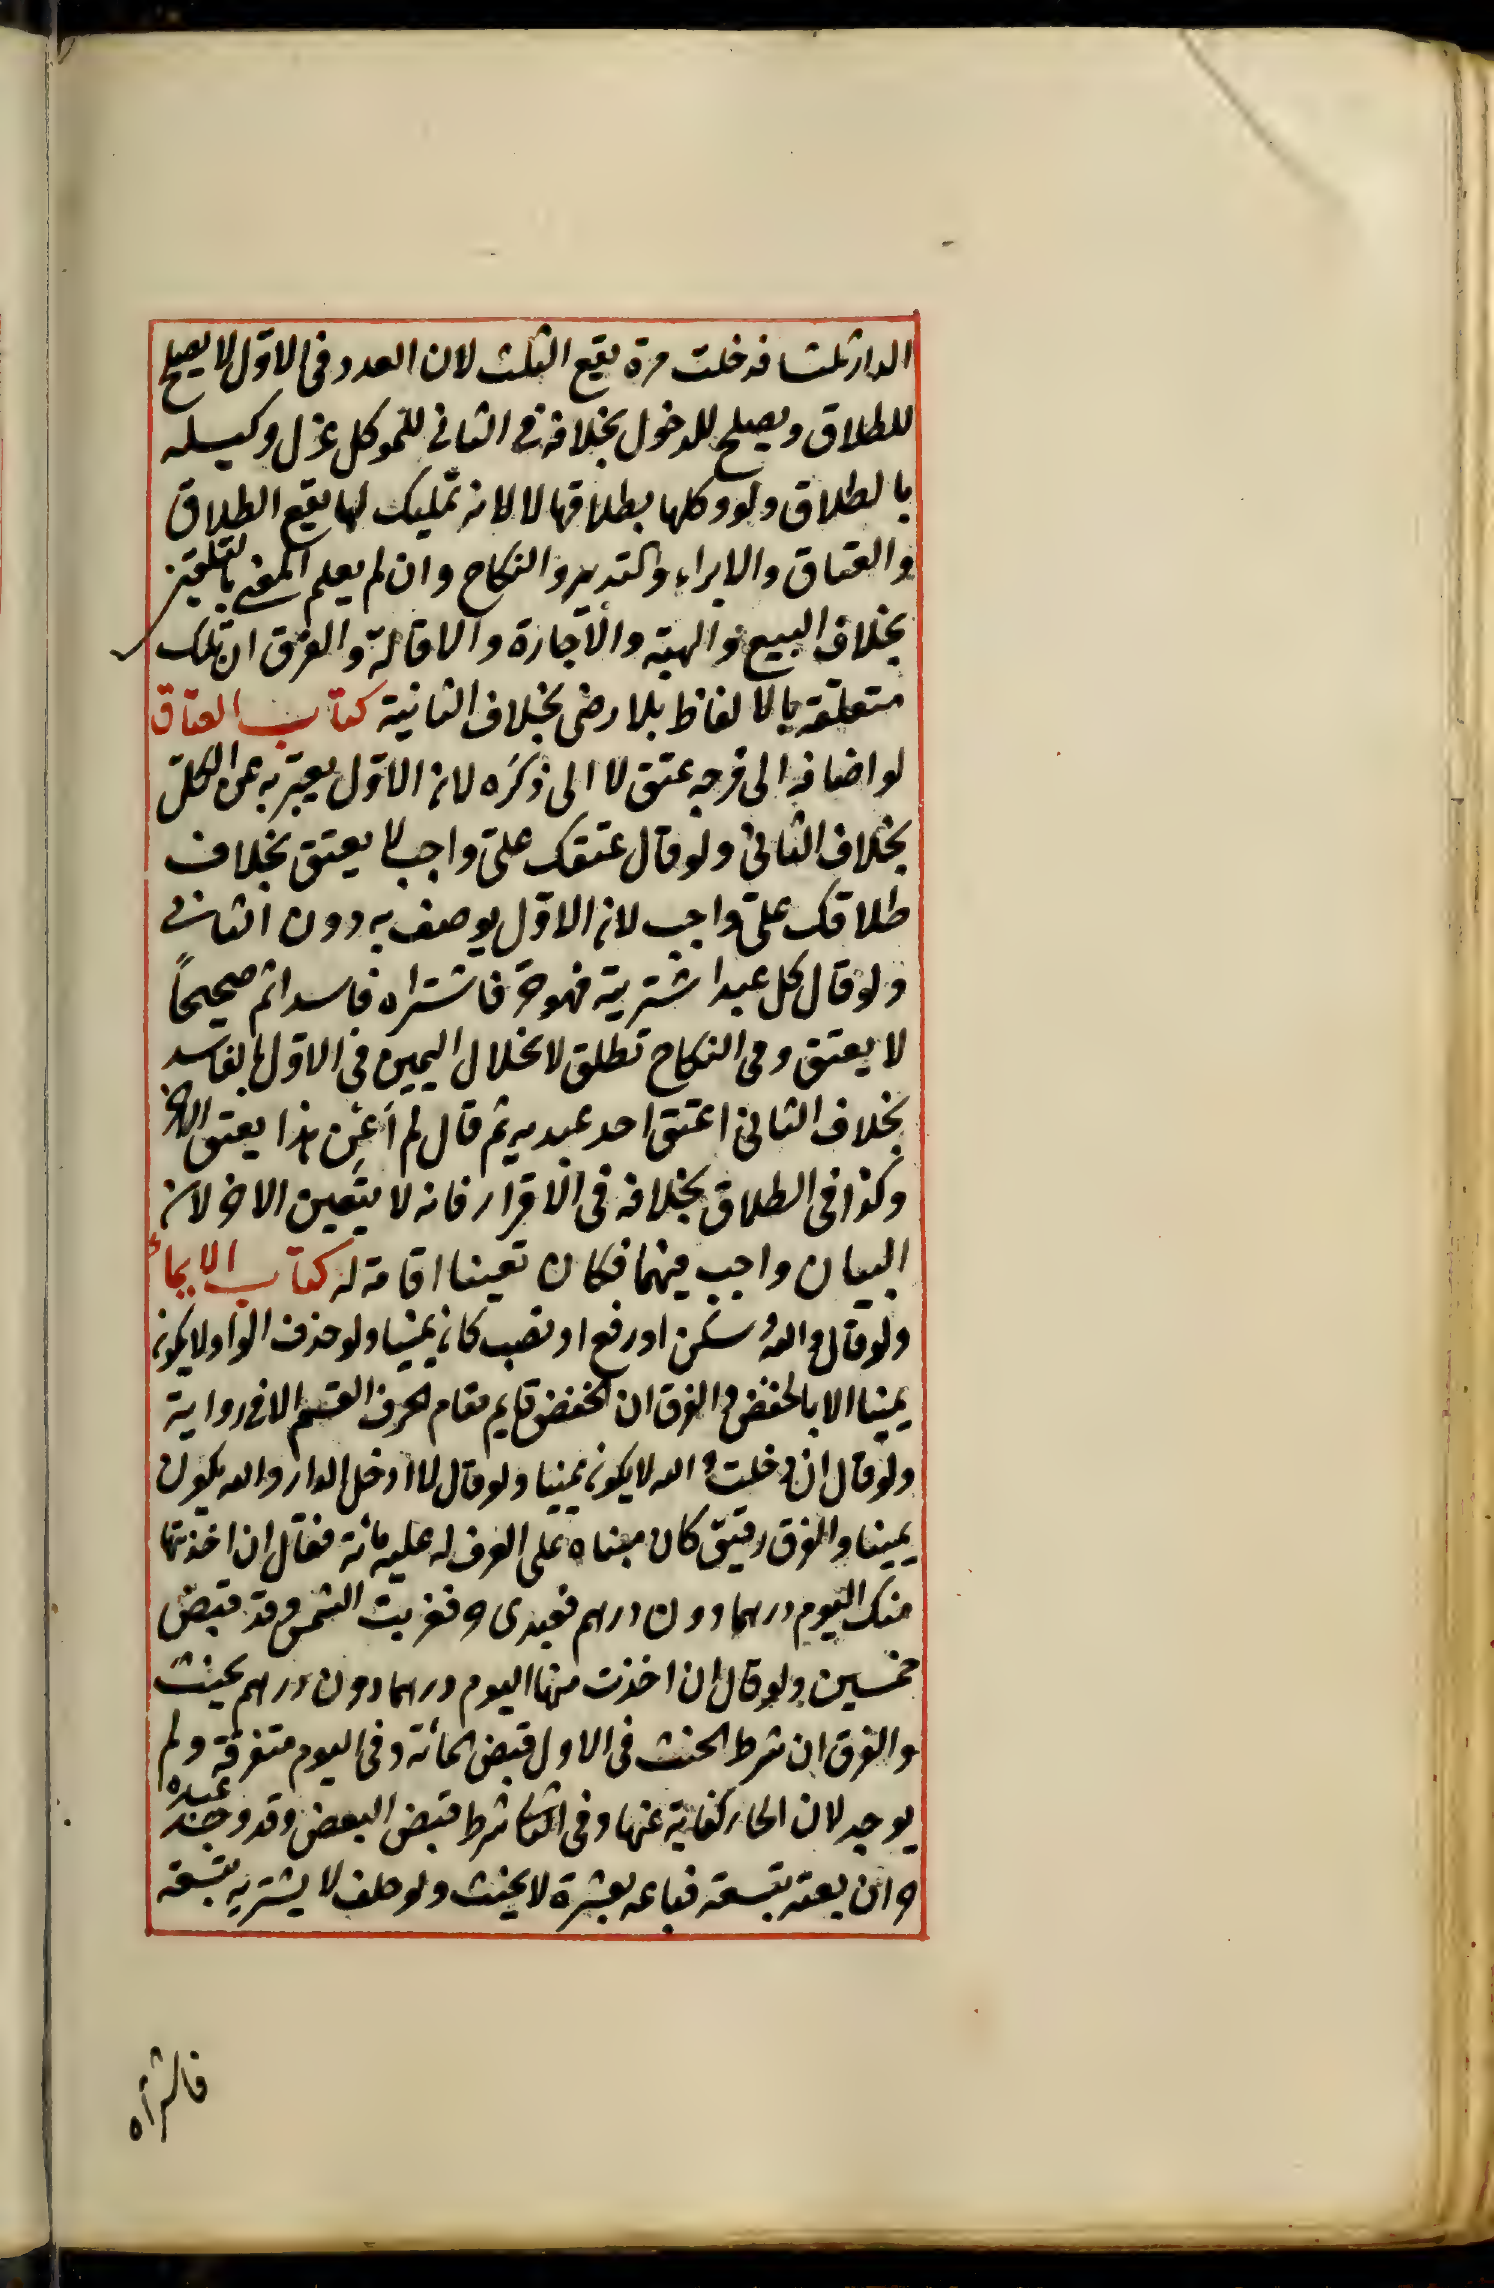 الدار ثلثا فدخلت مرة يقع الثلث لان العدد فى الاوّل لا يصلح
للطلاق ويصلح للدخول بخلافه فى الثانى للموكل عزل وكيله
بالطلاق ولو وكلها بطلاقها لا لانه تمليك لها يقع الطلاق
والعتاق والابراء والتدبير والنكاح وان لم يعلم المعنى بالتلقين
بخلاف البيع والهبة والاجارة والاقالة والفرق ان تلك
متعلقة بالالفاظ بلا رضى بخلاف الثانية كتاب العتاق
لو اضافه الى فرجه عتق لا الى ذكره لان الاوّل يعبّر به عن الكلّ
بخلاف الثانى ولو قال عتقك علىّ واجب لا يعتق بخلاف
طلاقك علىّ واجب لان الاوّل يوصف به دون الثانى
ولو قال كل عبد اشتريته فهو حر فاشتراه فاسدا ثم صحيحاً
لا يعتق وفى النكاح تطلق لانحلال اليمين فى الاول بالفاسد
بخلاف الثانى اعتق احد عبديه ثم قال لم أعن هذا يعتق الاخر
وكذا فى الطلاق بخلافه فى الاقرار فانه لا يتعين الاخر لان
البيان واجب فيهما فكان تعينا اقامة له كتاب الايمان
ولو قال والله وسكن او رفع او نصب كان يمينا ولو حذف الواو لا يكون
يمينا الا بالخفض والفرق ان الخفض قايم مقام حرف القسم الا فى رواية
ولو قال ان دخلت والله لا يكون يمينا ولو قال لا ادخل الدار والله يكون
يمينا والفرق دقيق كان مبناه على العرف له عليه مائة فقال ان اخذتها
منك اليوم درهما دون درهم فعبدى حر فغربت الشمس وقد قبض
خمسين ولو قال ان اخذت منها اليوم درهما دون درهم يحنث
والفرق ان شرط الحنث فى الاول قبض المائة فى اليوم متفرقة ولم
يوجد لان الها كناية عنها وفى الثانى شرط قبض البعض وقد وجد عبده
حر ان بعته بتسعة فباعه بعشرة لا يحنث ولو حلف لا يشتريه بتسعة
فاشتراه